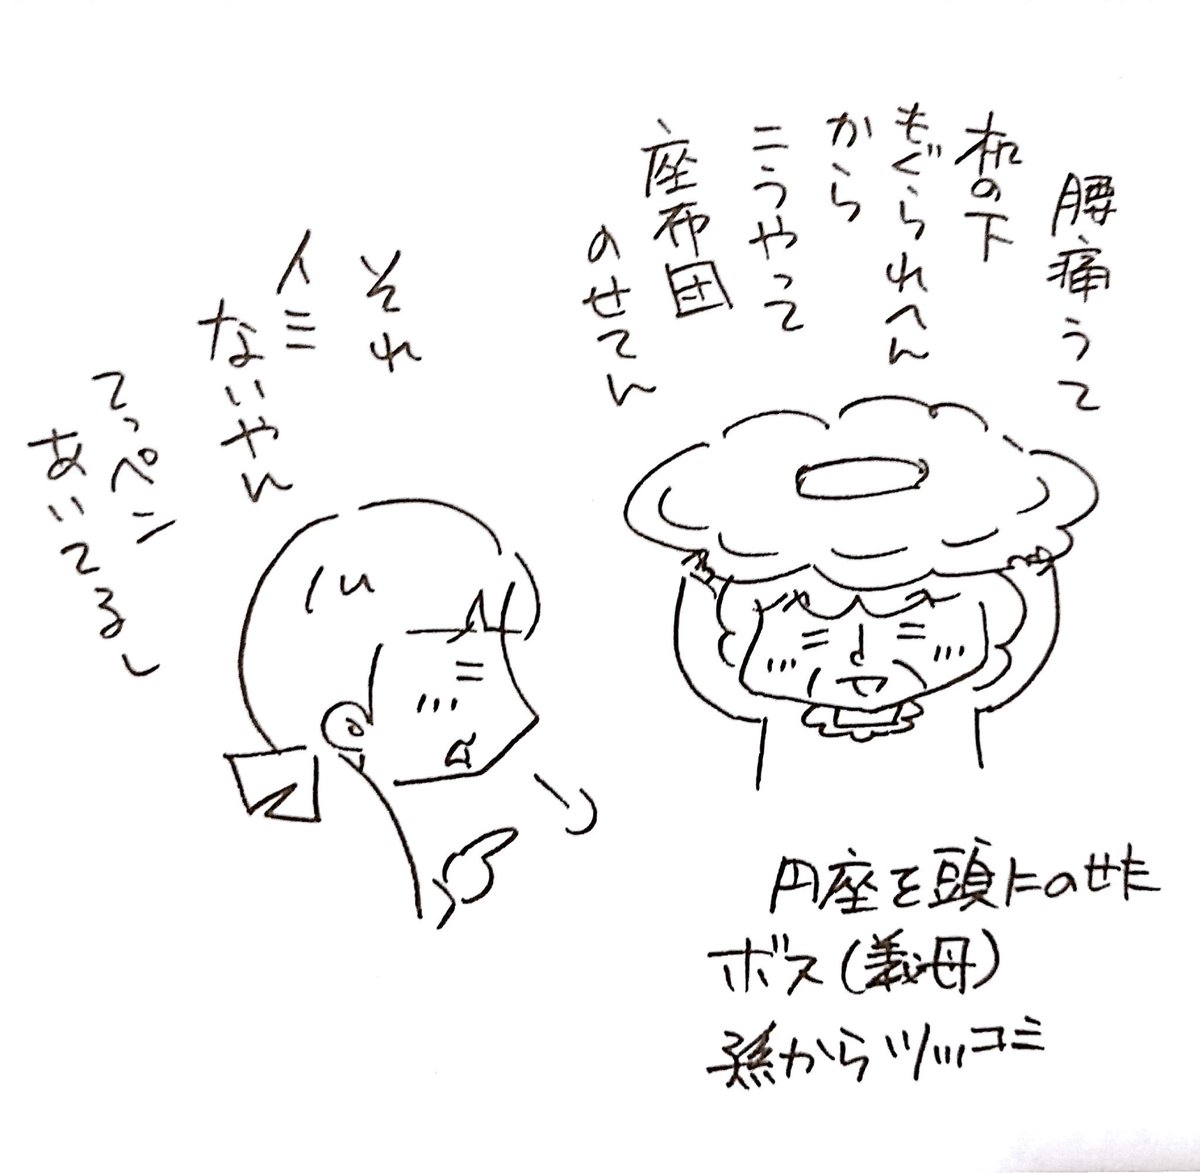 腰痛うて
机の下
もぐられへん
から
こうやって
座布団
のせてん
それ
イミ
ないやん
てっぺん
あいてるし
円座を頭にのせた
ボス(義母)
孫からツッコミ